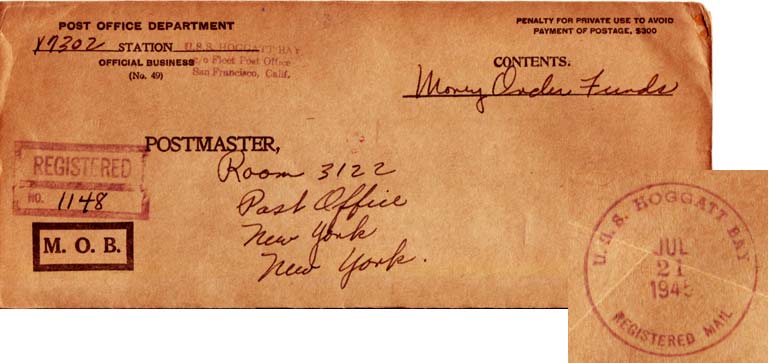 POST OFFICE DEPARTMENT
X7302 STATION U.S.S. HOGGATT BAY
OFFICIAL BUSINESS c/o Fleet Post Office
(No. 49) San Francisco, Calif.
PENALTY FOR PRIVATE USE TO AVOID
PAYMENT OF POSTAGE, $300
CONTENTS:
Money Order Funds
POSTMASTER,
Room 3122
Post Office
New York
New York.
REGISTERED
NO. 1148
M. O. B.
U.S.S. HOGGATT BAY
JUL
21
1945
REGISTERED MAIL